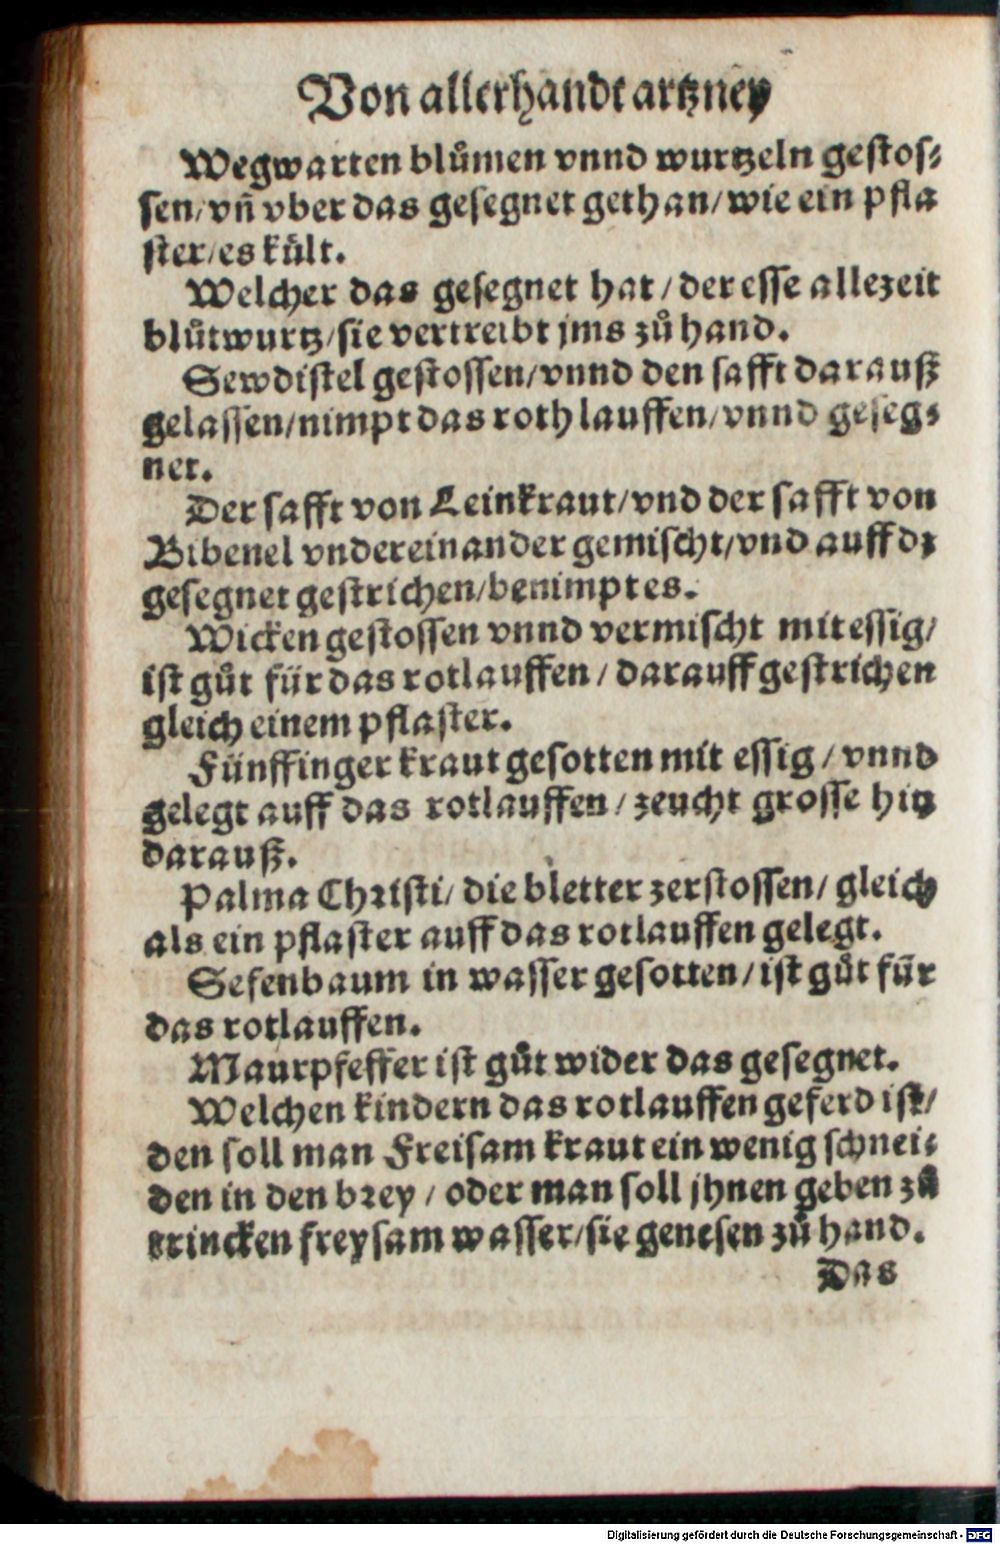 Von allerhandt artzney
Wegwarten blůmen vnnd wurtzeln gestos⸗
sen/ vñ vber das gesegnet gethan/ wie ein pfla
ster/ es kült.
Welcher das gesegnet hat / der esse allezeit
blůtwurtz/ sie vertreibt jms zů hand.
Sewdistel gestossen/ vnnd den safft darauß
gelassen/ nimpt das roth lauffen/ vnnd geseg⸗
net.
Der safft von Leinkraut/ vnd der safft von
Bibenel vndereinander gemischt/ vnd auff dz
gesegnet gestrichen/ benimpt es.
Wicken gestossen vnnd vermischt mit essig/
ist gůt für das rotlauffen / darauff gestrichen
gleich einem pflaster.
Fünffinger kraut gesotten mit essig / vnnd
gelegt auff das rotlauffen / zeucht grosse hitz
darauß.
Palma Christi/ die bletter zerstossen/ gleich
als ein pflaster auff das rotlauffen gelegt.
Sefenbaum in wasser gesotten/ ist gůt für
das rotlauffen.
Maurpfeffer ist gůt wider das gesegnet.
Welchen kindern das rotlauffen geferd ist/
den soll man Freisam kraut ein wenig schnei⸗
den in den brey / oder man soll jhnen geben zů
trincken freysam wasser/ sie genesen zů hand.
Das
Digitalisierung gefördert durch die Deutsche Forschungsgemeinschaft - DFG